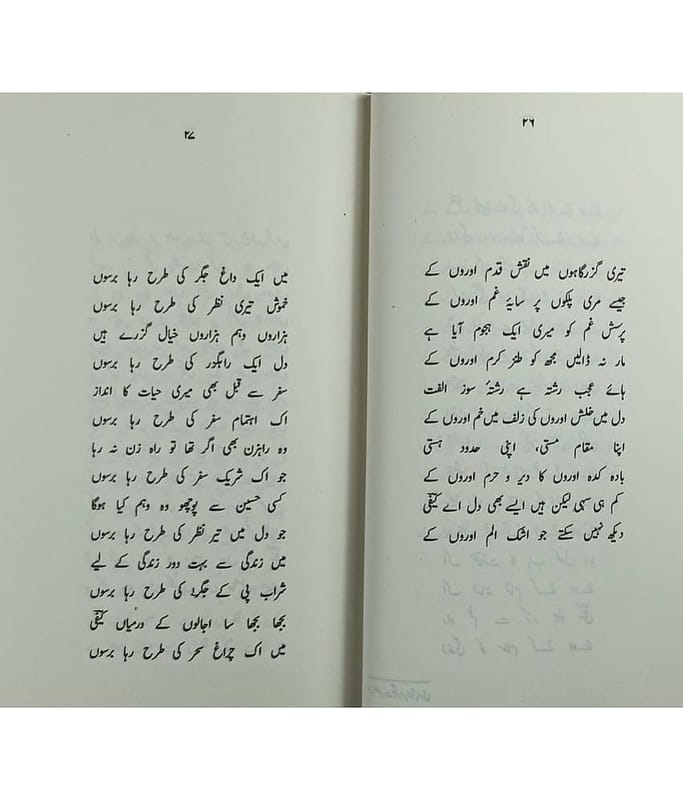 ۲۶
تیری گزرگاہوں میں نقش قدم اوروں کے
جیسے مری پلکوں پر سایۂ غم اوروں کے
پرسش غم کو میری ایک ہجوم آیا ہے
مار نہ ڈالیں مجھ کو طنز کرم اوروں کے
ہائے عجب رشتہ ہے رشتۂ سوز الفت
دل میں خلش اوروں کی زلف میں خم اوروں کے
اپنا مقام مستی، اپنی حدود ہستی
بادہ کدہ اوروں کا دیر و حرم اوروں کے
کم ہی سہی لیکن ہیں ایسے بھی دل اے کیفی
دیکھ نہیں سکتے جو اشک الم اوروں کے
۲۷
میں ایک داغ جگر کی طرح رہا برسوں
خموش تیری نظر کی طرح رہا برسوں
ہزاروں وہم ہزاروں خیال گزرے ہیں
دل ایک راہگزر کی طرح رہا برسوں
سفر سے قبل بھی میری حیات کا انداز
اک اہتمام سفر کی طرح رہا برسوں
وہ راہزن بھی اگر تھا تو راہ زن نہ رہا
جو اک شریک سفر کی طرح رہا برسوں
کسی حسین سے پوچھو وہ وہم کیا ہوگا
جو دل میں تیر نظر کی طرح رہا برسوں
میں زندگی سے بہت دور زندگی کے لیے
شراب پی کے جگر کی طرح رہا برسوں
بجھا بجھا سا اجالوں کے درمیاں کیفی
میں اک چراغ سحر کی طرح رہا برسوں